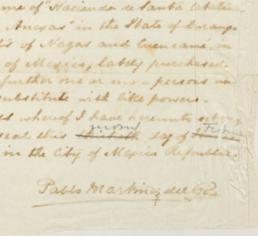 me of "Hacienda de Santa Catalina
Anexas" in the State of Durango
ts of Nazas and Cuencame, in
of Mexico, lately purchased
further one or more persons as
substitute with like powers.
whereof I have hereunto set my
seal this day of
in the City of Mexico Republic
Pablo Martinez del Rio